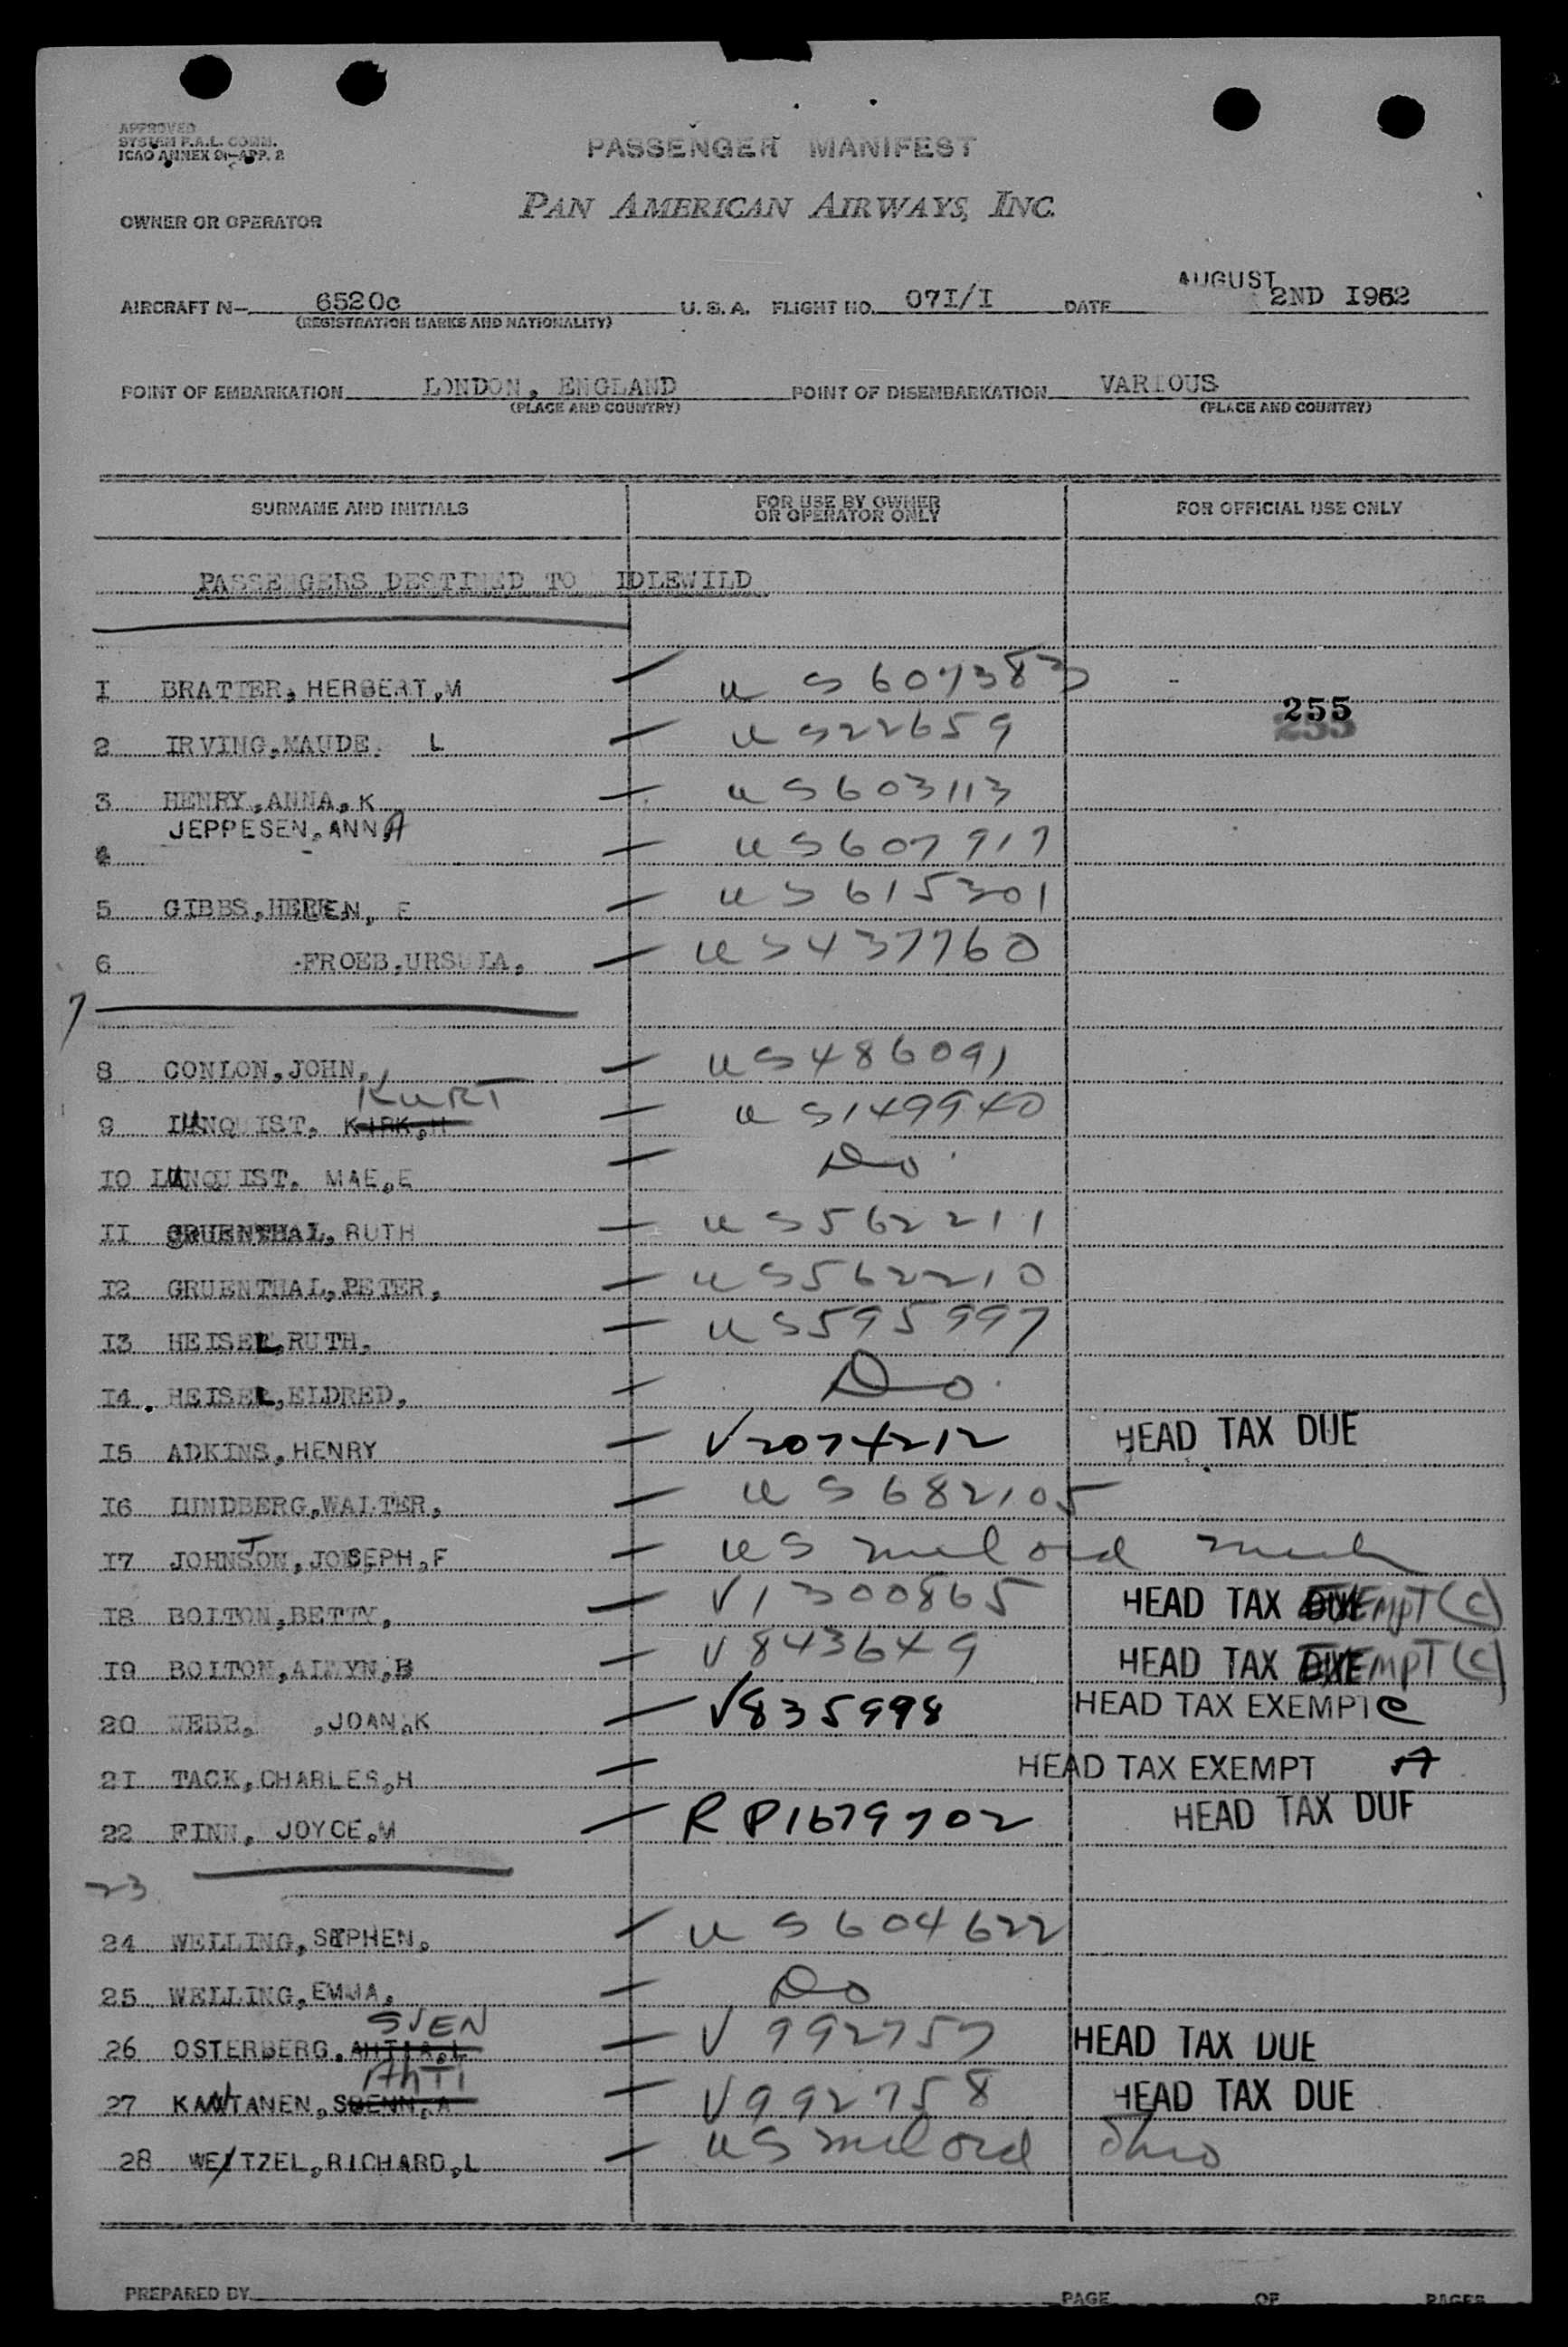 APPROVED
SYSTEM P.A.L. COMM.
ICAO ANNEX 9-APP. 2
PASSENGER MANIFEST
OWNER OR OPERATOR PAN AMERICAN AIRWAYS, INC.
AIRCRAFT N- 6520c U.S.A. FLIGHT NO. 07I/I DATE AUGUST 2ND I952
(REGISTRATION MARKS AND NATIONALITY)
POINT OF EMBARKATION LONDON, ENGLAND POINT OF DISEMBARKATION VARIOUS
(PLACE AND COUNTRY) (PLACE AND COUNTRY)
SURNAME AND INITIALS FOR USE BY OWNER OR OPERATOR ONLY FOR OFFICIAL USE ONLY
PASSENGERS DESTINED TO IDLEWILD
I BRATTER, HERBERT, M — US 607383
255
2 IRVING, MAUDE. L — US22659
3 HENRY, ANNA, K — US603113
4 JEPPESEN, ANNA — US607917
5 GIBBS, HELEN, E — US615301
6 FROEB, URSULA, — US437760
7
8 CONLON, JOHN, — US486091
9 LUNQUIST, KIRK, H KURT — US149940
IO LUNQUIST. MAE, E — Do
II GRUENTHAL, RUTH — US562211
I2 GRUENTHAL, PETER, — US562210
I3 HEISEL, RUTH, — US595997
I4. HEISEL, ELDRED, — Do
I5 ADKINS, HENRY — V2074212 HEAD TAX DUE
I6 LUNDBERG, WALTER, — US 682105
I7 JOHNSTON, JOSEPH, F — US mil ord
I8 BOLTON, BETTY, — V1300865 HEAD TAX DUE EXEMPT (C)
I9 BOLTON, AILWYN, B — V843649 HEAD TAX DUE EXEMPT (C)
20 WEBB, , JOAN, K — V835998 HEAD TAX EXEMPT C
2I TACK, CHARLES, H — HEAD TAX EXEMPT A
22 FINN, JOYCE, M — RP1679702 HEAD TAX DUE
23
24 WELLING, STEPHEN, — US604622
25 WELLING, EMMA, — Do
26 OSTERBERG, AHTIA, L SVEN — V 992757 HEAD TAX DUE
27 KANTANEN, SVENN, A AhTi — V992758 HEAD TAX DUE
28 WEITZEL, RICHARD, L — US mil ord Ohio
PREPARED BY PAGE OF PAGES